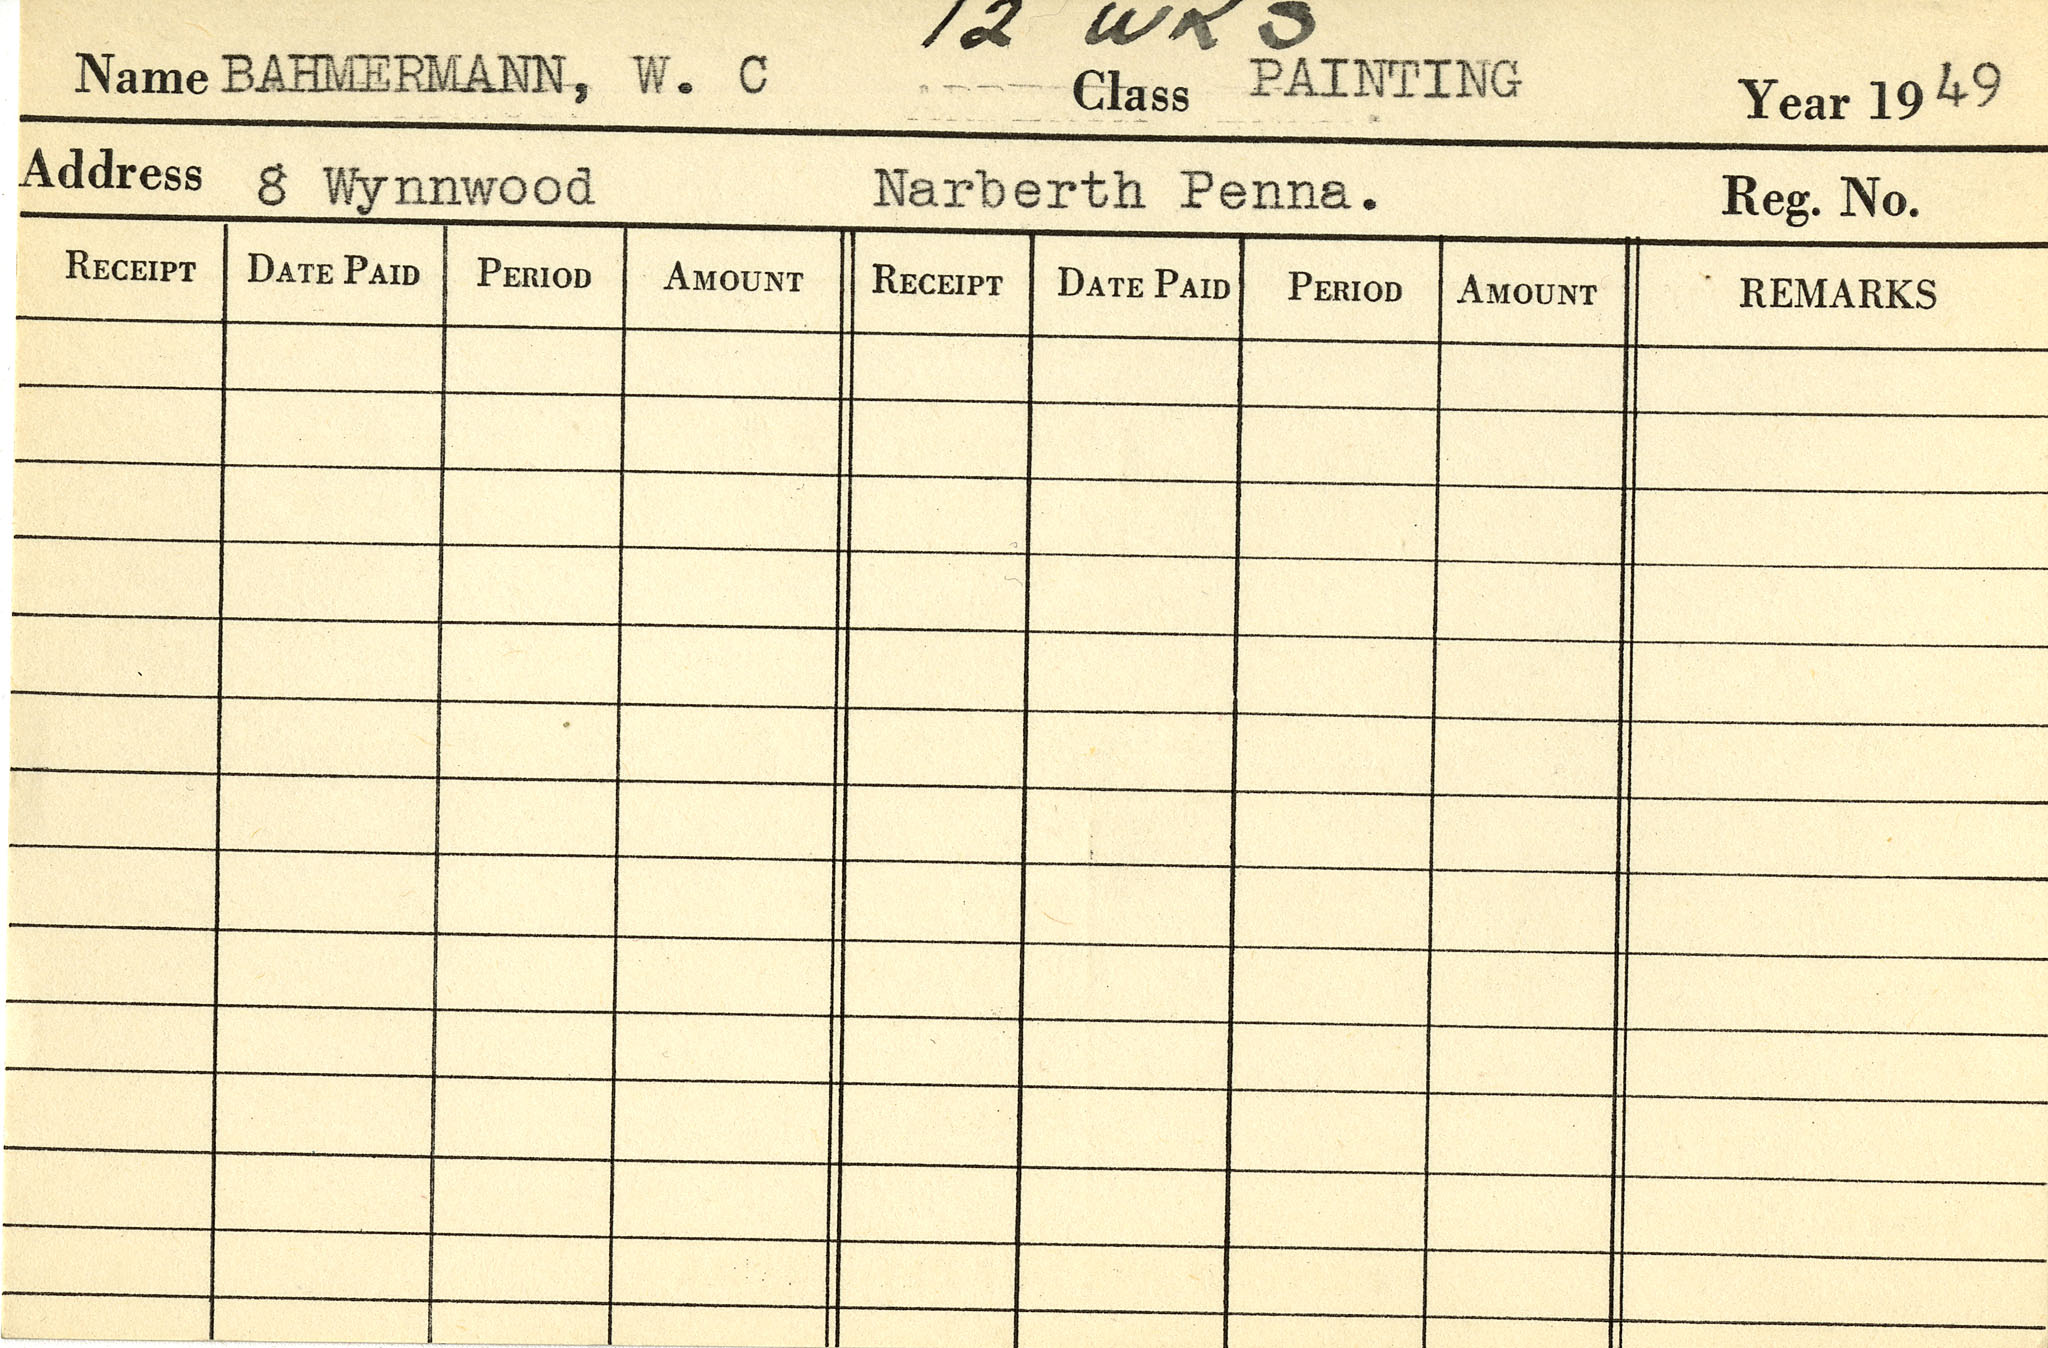 12 WKS
Name BAHMERMANN, W. C Class PAINTING Year 1949
Address 8 Wynnwood Narberth Penna. Reg. No.
RECEIPT DATE PAID PERIOD AMOUNT RECEIPT DATE PAID PERIOD AMOUNT REMARKS